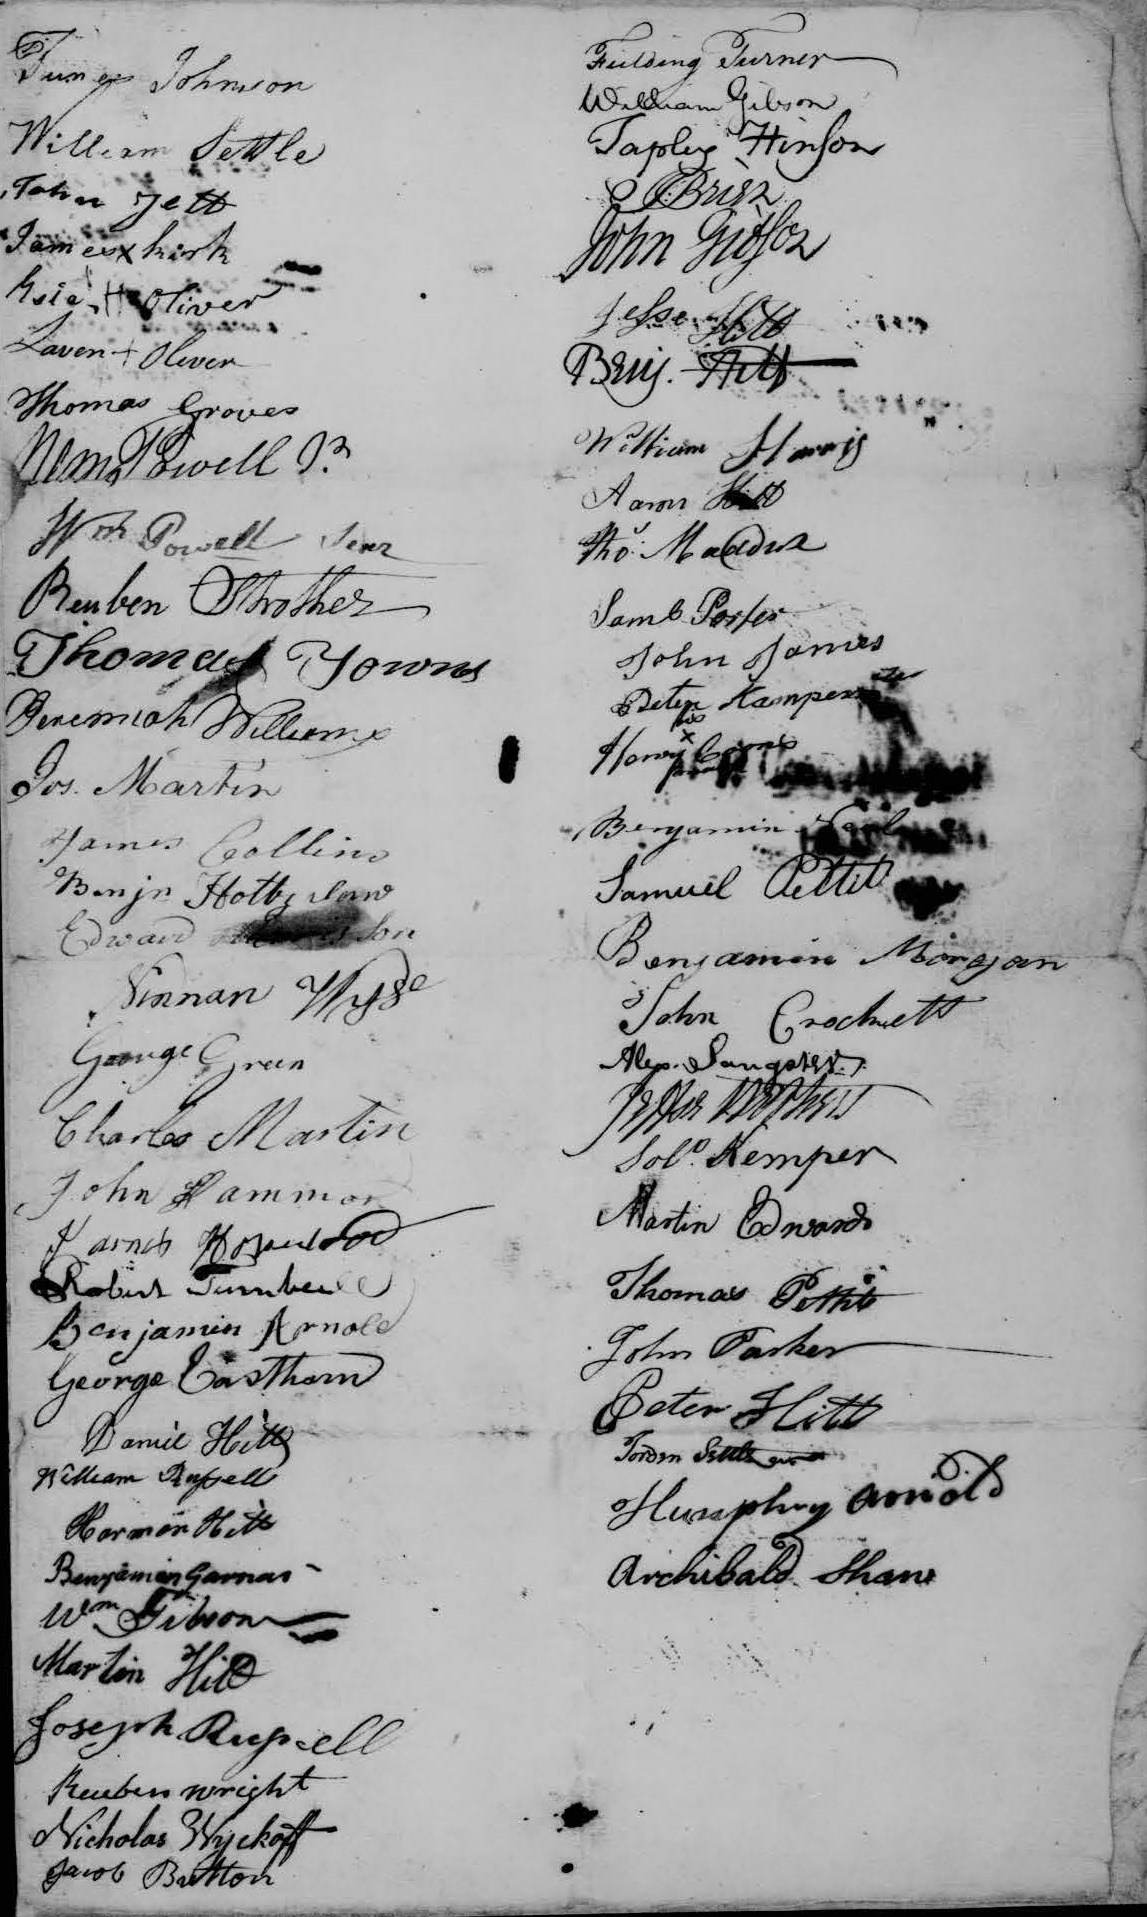 Johnson
William Settle
John Jett
James x kirk
Oliver
Laven + Oliver
Thomas Groves
Powell Jr
Wm Powell Senr
Reuben Strother
Thomas Towns
Jeremiah Williams
Jos. Martin
James Collins
Benjn
Edward
Ninnan Wyse
George Green
Charles Martin
John Hammon
James
Robert Turnbull
Benjamin Arnold
George Eastham
Daniel Hitt
William Russell
Harmon Hitt
Benjamin
Wm Gibson
Martin Hitt
Joseph Russell
Reuben wright
Nicholas Wyckoff
Jacob Button
Fielding Turner
William Gibson
Tapley Hinson
John Gibson
Jesse Hitt
Benj. Hitt
William Harris
Aaron Hitt
Tho. Maddux
Saml Porter
John James
Peter Kemper
his
Harvy x
Benjamin
Samuel Pettit
Benjamin Morgan
John Crockett
Alex. Sangster
Solo. Kemper
Martin Edwards
Thomas Pettit
John Parker
Peter Hitt
Jorden Settle
Humphry Arnold
Archibald Shane